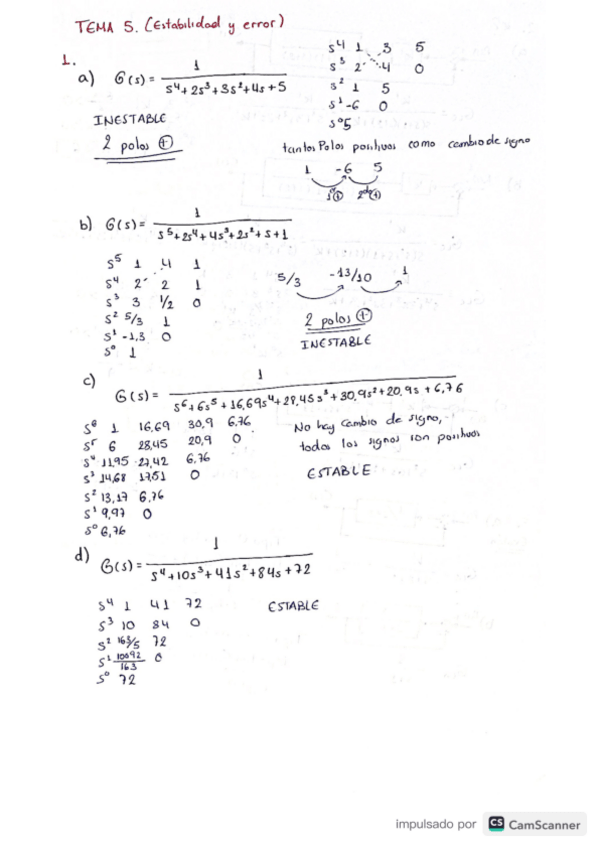 TEMA 5. (Estabilidad y error)
1.
a) G(s) = 1 / s⁴+2s³+3s²+4s+5
INESTABLE
2 polos ⊕
s⁴ 1 3 5
s³ 2 4 0
s² 1 5
s¹ -6 0
s⁰ 5
tantos Polos positivos como cambio de signo
1 -6 5
b) G(s) = 1 / s⁵+2s⁴+4s³+2s²+s+1
s⁵ 1 4 1
s⁴ 2 2 1
s³ 3 1/2 0
s² 5/3 1
s¹ -1,3 0
s⁰ 1
5/3 -13/10 1
2 polos ⊕
INESTABLE
c)
G(s) = 1 / s⁶+6s⁵+16,69s⁴+28,45s³+30,9s²+20,9s+6,76
s⁶ 1 16,69 30,9 6,76
s⁵ 6 28,45 20,9 0
s⁴ 11,95 27,42 6,76
s³ 14,68 17,51 0
s² 13,17 6,76
s¹ 9,97 0
s⁰ 6,76
No hay cambio de signo,
todos los signos son positivos
ESTABLE
d)
G(s) = 1 / s⁴+10s³+41s²+84s+72
s⁴ 1 41 72
s³ 10 84 0
s² 163/5 72
s¹ 10092/163 0
s⁰ 72
ESTABLE
impulsado por CS CamScanner